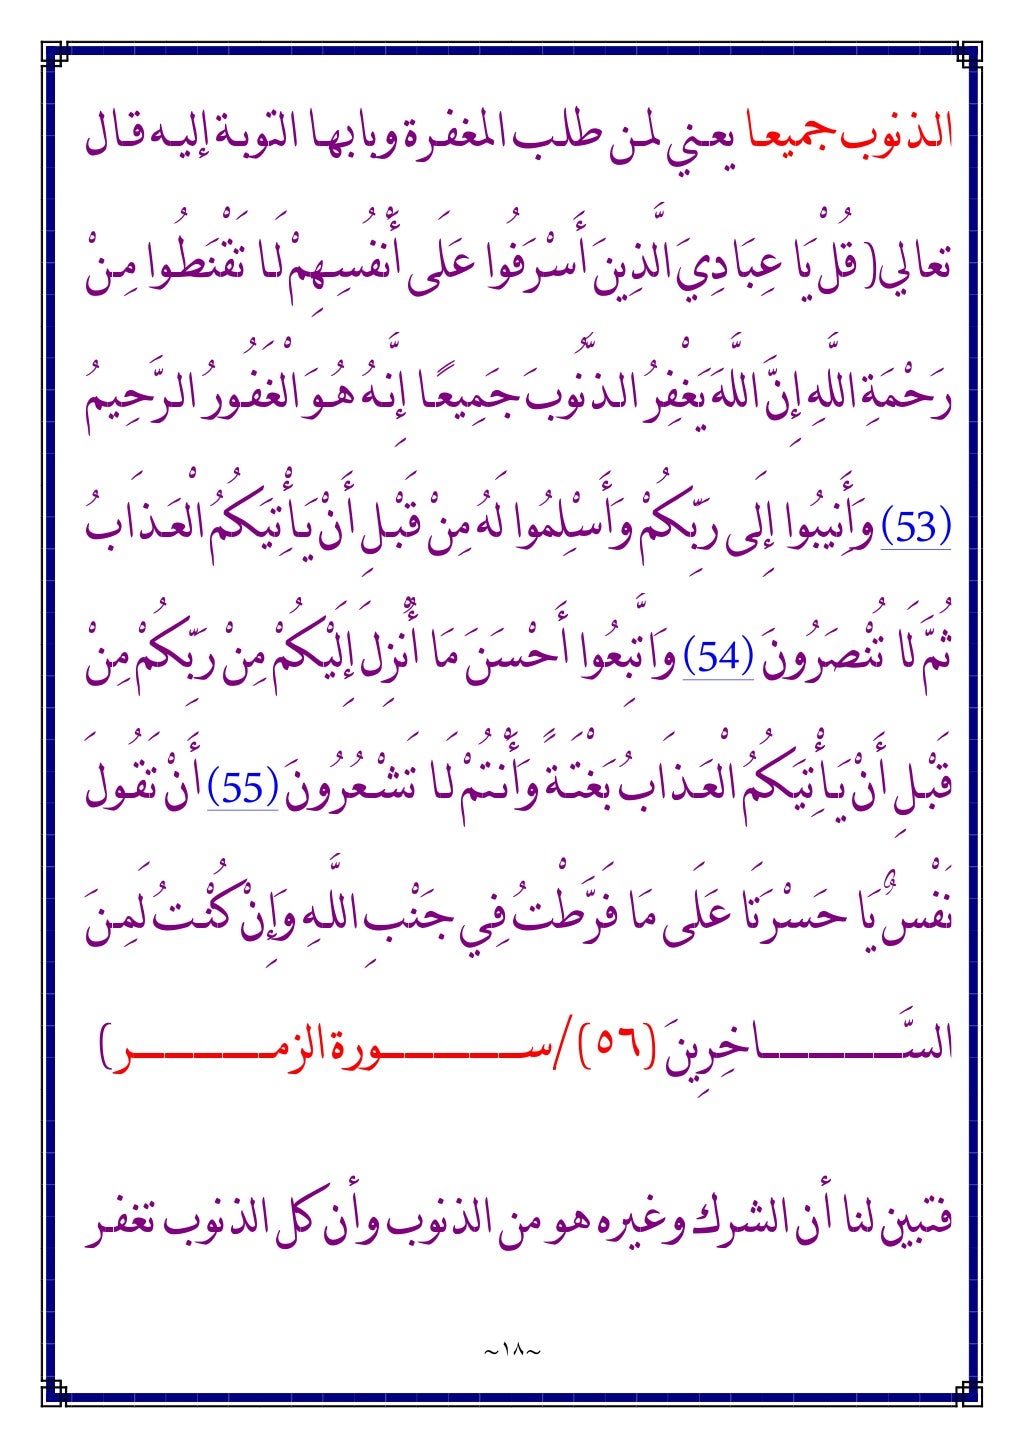 الذنوب جميعا يعني لمن طلب المغفرة وبابها التوبة إليه قال
تعالي( قُلْ يَا عِبَادِيَ الَّذِينَ أَسْرَفُوا عَلَى أَنْفُسِهِمْ لَا تَقْنَطُوا مِنْ
رَحْمَةِ اللَّهِ إِنَّ اللَّهَ يَغْفِرُ الذُّنُوبَ جَمِيعًا إِنَّهُ هُوَ الْغَفُورُ الرَّحِيمُ
(53) وَأَنِيبُوا إِلَى رَبِّكُمْ وَأَسْلِمُوا لَهُ مِنْ قَبْلِ أَنْ يَأْتِيَكُمُ الْعَذَابُ
ثُمَّ لَا تُنْصَرُونَ (54) وَاتَّبِعُوا أَحْسَنَ مَا أُنْزِلَ إِلَيْكُمْ مِنْ رَبِّكُمْ مِنْ
قَبْلِ أَنْ يَأْتِيَكُمُ الْعَذَابُ بَغْتَةً وَأَنْتُمْ لَا تَشْعُرُونَ (55) أَنْ تَقُولَ
نَفْسٌ يَا حَسْرَتَا عَلَى مَا فَرَّطْتُ فِي جَنْبِ اللَّهِ وَإِنْ كُنْتُ لَمِنَ
السَّاخِرِينَ (٥٦)/سورة الزمر)
فتبين لنا أن الشرك وغيره هو من الذنوب وأن كل الذنوب تغفر
~١٨~